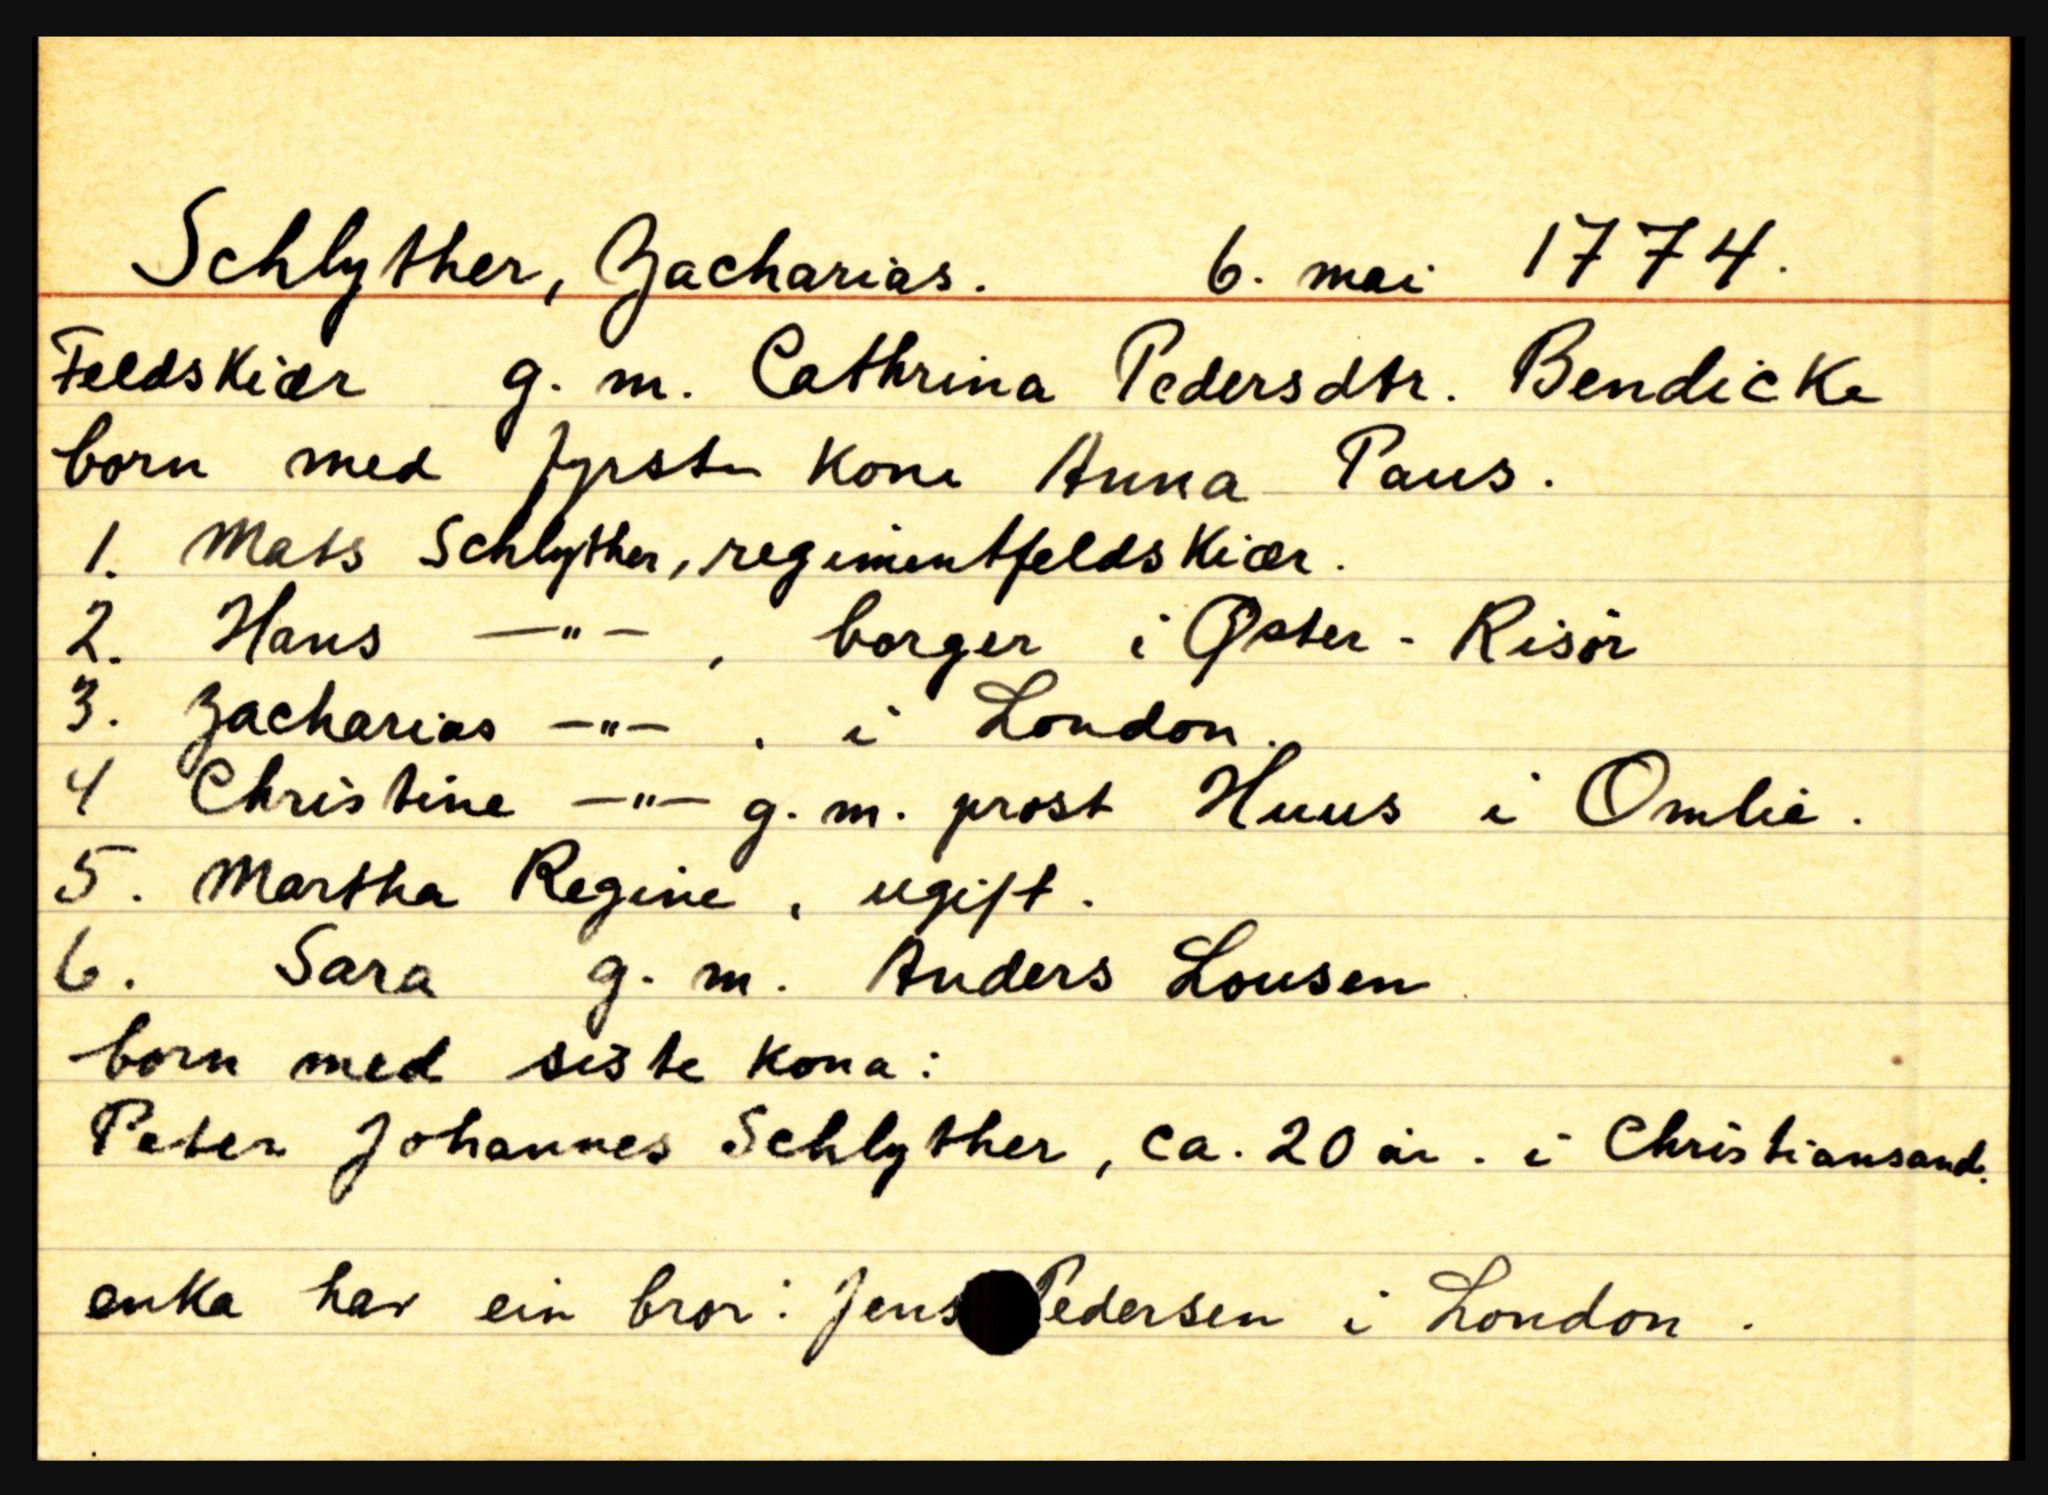 Schlyther, Zacharias. 6. mai 1774.
Feldskiær g. m. Cathrina Pedersdtr. Bendicke
born med fyrste kone Anna Paus.
1. Mats Schlyther, regimentfeldskiær.
2. Hans —"—, borger i Øster-Risör
3. Zacharias —"—, i London.
4 Christine —"— g. m. prost Huus i Omlie.
5. Martha Regine, ugift.
6. Sara g. m. Anders Lousen
born med siste kona:
Peter Johannes Schlyther, ca. 20 år. i Christiansand.
enka har ein bror: Jens Pedersen i London.